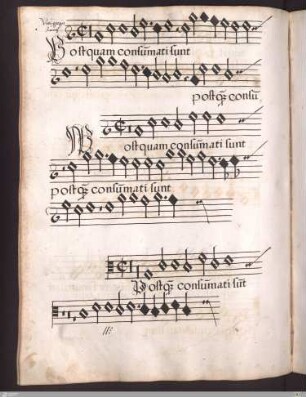 Postquam consum̄ati sunt
postq̄ consū
Postquam consum̄ati sunt
postq̄ consum̄ati sunt
Postq̄ consum̄ati sūt